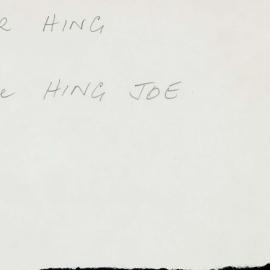 R HING
e HING JOE